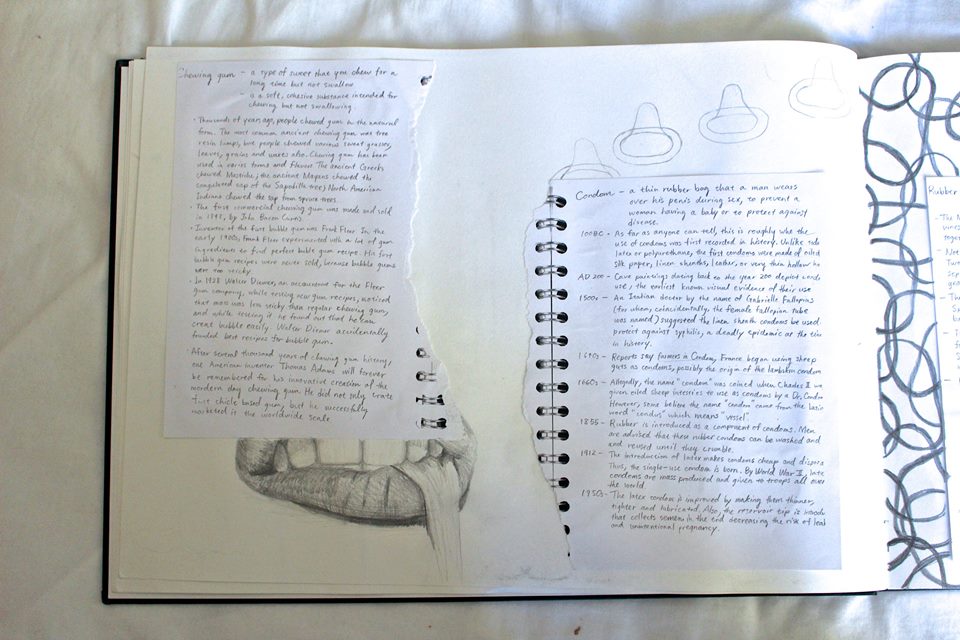 Chewing gum - a type of sweet that you chew for a
long time but not swallow
- is a soft, cohesive substance intended for
chewing but not swallowing.
· Thousands of years ago, people chewed gum in the natural
form. The most common ancient chewing gum was tree
resin lumps, but people chewed various sweet grasses,
leaves, grains and waxes also. Chewing gum has been
used in varies forms and flavor. The ancient Greeks
chewed Mastiche; the ancient Mayans chewed the
congealated sap of the Sapodilla tree; North American
Indians chewed the sap from spruce trees.
· The first commercial chewing gum was made and sold
in by John Bacon Curtis
· Inventor of the first bubble gum was Frank Fleer. In the
early 1900s, Frank Fleer experimented with a lot of gum
ingredients to find perfect bubble gum recipe. His first
bubble gum recipes were never sold, because bubble gums
were too sticky
· In 1928 Walter Diemer, an accountant for the Fleer
gum company, while testing new gum recipes, noticed
that mass was less sticky than regular chewing gum,
and while testing it he found out that he can
creat bubble easily. Walter Diemer accidentally
founded best recipes for bubble gum.
· After several thousand years of chewing gum history,
one American inventor Thomas Adams will forever
be remembered for his innovative creation of the
mordern day chewing gum. He did not only create
first chicle based gum, but he successfully
marketed it the worldwide scale
Condom - a thin rubber bag that a man wears
over his penis during sex, to prevent a
woman having a baby or to protect against
disease.
1000BC - As far as anyone can tell, this is roughly whe the
use of condoms was first recorded in history. Unlike
latex or polyurethane, the first condoms were made of oiled
silk paper, linen sheaths, leather, or very thin hollow
AD 200 - Cave paintings dating back to the year 200 depict
use; the earliest known visual evidence of their use
1500s - An Italian doctor by the name of Gabrielle Fallopius
(for whom, coincidentally, the female fallopian tube
was named) suggested the linen sheath condoms be used
protect against syphilis, a deadly epidemic at the
in history.
1640s - Reports say farmers in Condom, France began using sheep
guts as condoms, possibly the origin of the lambskin condom
1660s - Allegedly, the name "condom" was coined when Charles II
given oiled sheep to use as condoms by a Dr. Condom
However, some believe the name "condom" came from the latin
word "condus" which means "vessel"
1855 - Rubber is introduced as a component of condoms. Men
are advised that these rubber condoms can be washed and
and reused until they crumble.
1912 - The introduction of latex makes condoms cheap and
Thus, the single-use condom is born. By World War II, late
condoms are mass produced and given to troops all over
the world
1950s - The latex condom is improved by making them thinner,
tighter and lubricated. Also, the reservoir tip is
that collects semen in the end decreasing the risk of leak
and unintentional pregnancy.
Rubber